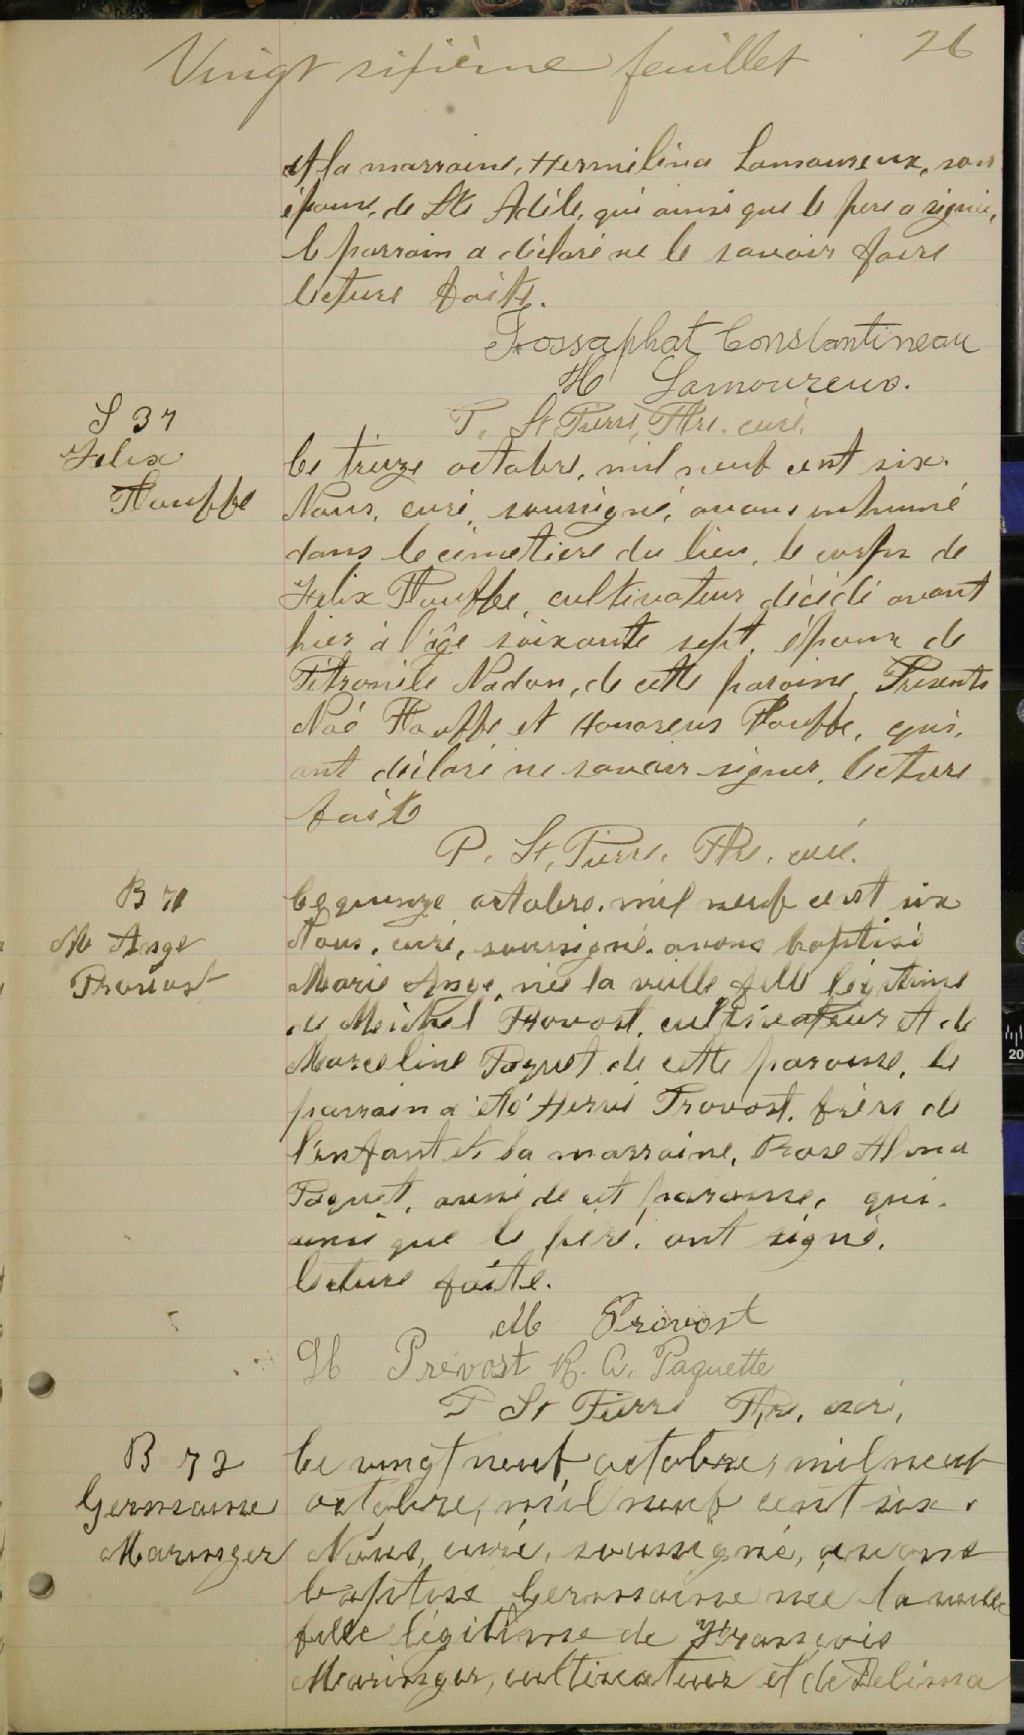 Vingt sixième feuillet 26
et la marraine, Hermélina Lamoureux, son
épouse, de Ste Adèle, qui ainsi que le père a signé,
le parrain a déclaré ne le savoir faire
lecture faite.
Jossaphat Constantineau
H Lamoureux.
P. St Pierre, Ptre. curé.
S 37
Felix
Plouffe
Le treize octobre, mil neuf cent six.
Nous, curé, soussigné, avons inhumé
dans le cimetière du lieu, le corps de
Felix Plouffe, cultivateur décédé avant
hier à l'âge soixante sept, époux de
Pétronile Nadon, de cette paroisse, Présents
Noé Plouffe et Honoreus Plouffe, qui,
ont déclaré ne savoir signer, lecture
faite
P. St, Pierre. Ptre. curé.
B 71
M Ange
Provost
Le quinze octobre, mil neuf cent six
Nous, curé, soussigné, avons baptisé
Marie Ange, née la veille fille légitime
de Michel Provost, cultivateur et de
Marceline Paquet de cette paroisse, le
parrain a été Hervé Provost, frère de
l'enfant et la marraine, Rose Alma
Paquet, aussi de cet paroisse, qui
ainsi que le père, ont signé.
lecture faite.
M Provost
H Prévost R. A. Paquette
P St Pierre Ptre, curé,
B 72
Germaine
Maringer
Le vingt neuf octobre, mil neuf
octobre, mil neuf cent six.
Nous, curé, soussigné, avons
baptisé Germaine née la veille
fille légitime de François
Maringer, cultivateur et de Delima
20